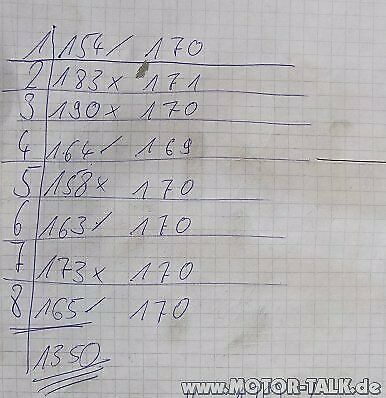 1 154/ 170
2 183x 171
3 190x 170
4 164/ 169
5 158x 170
6 163/ 170
7 173x 170
8 165/ 170
1350
www.MOTOR-TALK.de